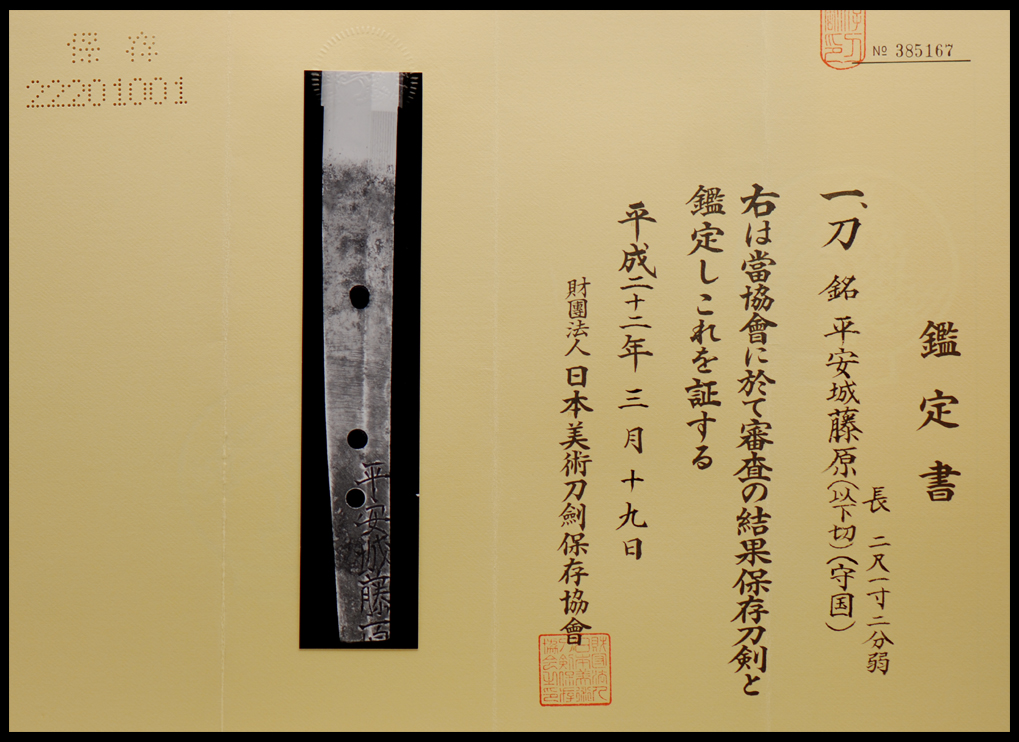 鑑定書
№ 385167
一、刀 銘 平安城藤原(以下切)(守国)
長 二尺一寸二分弱
右は當協會に於て審査の結果保存刀剣と
鑑定しこれを証する
平成二十二年 三月十九日
財團法人 日本美術刀劍保存協會
平安城藤原
保存
22201001